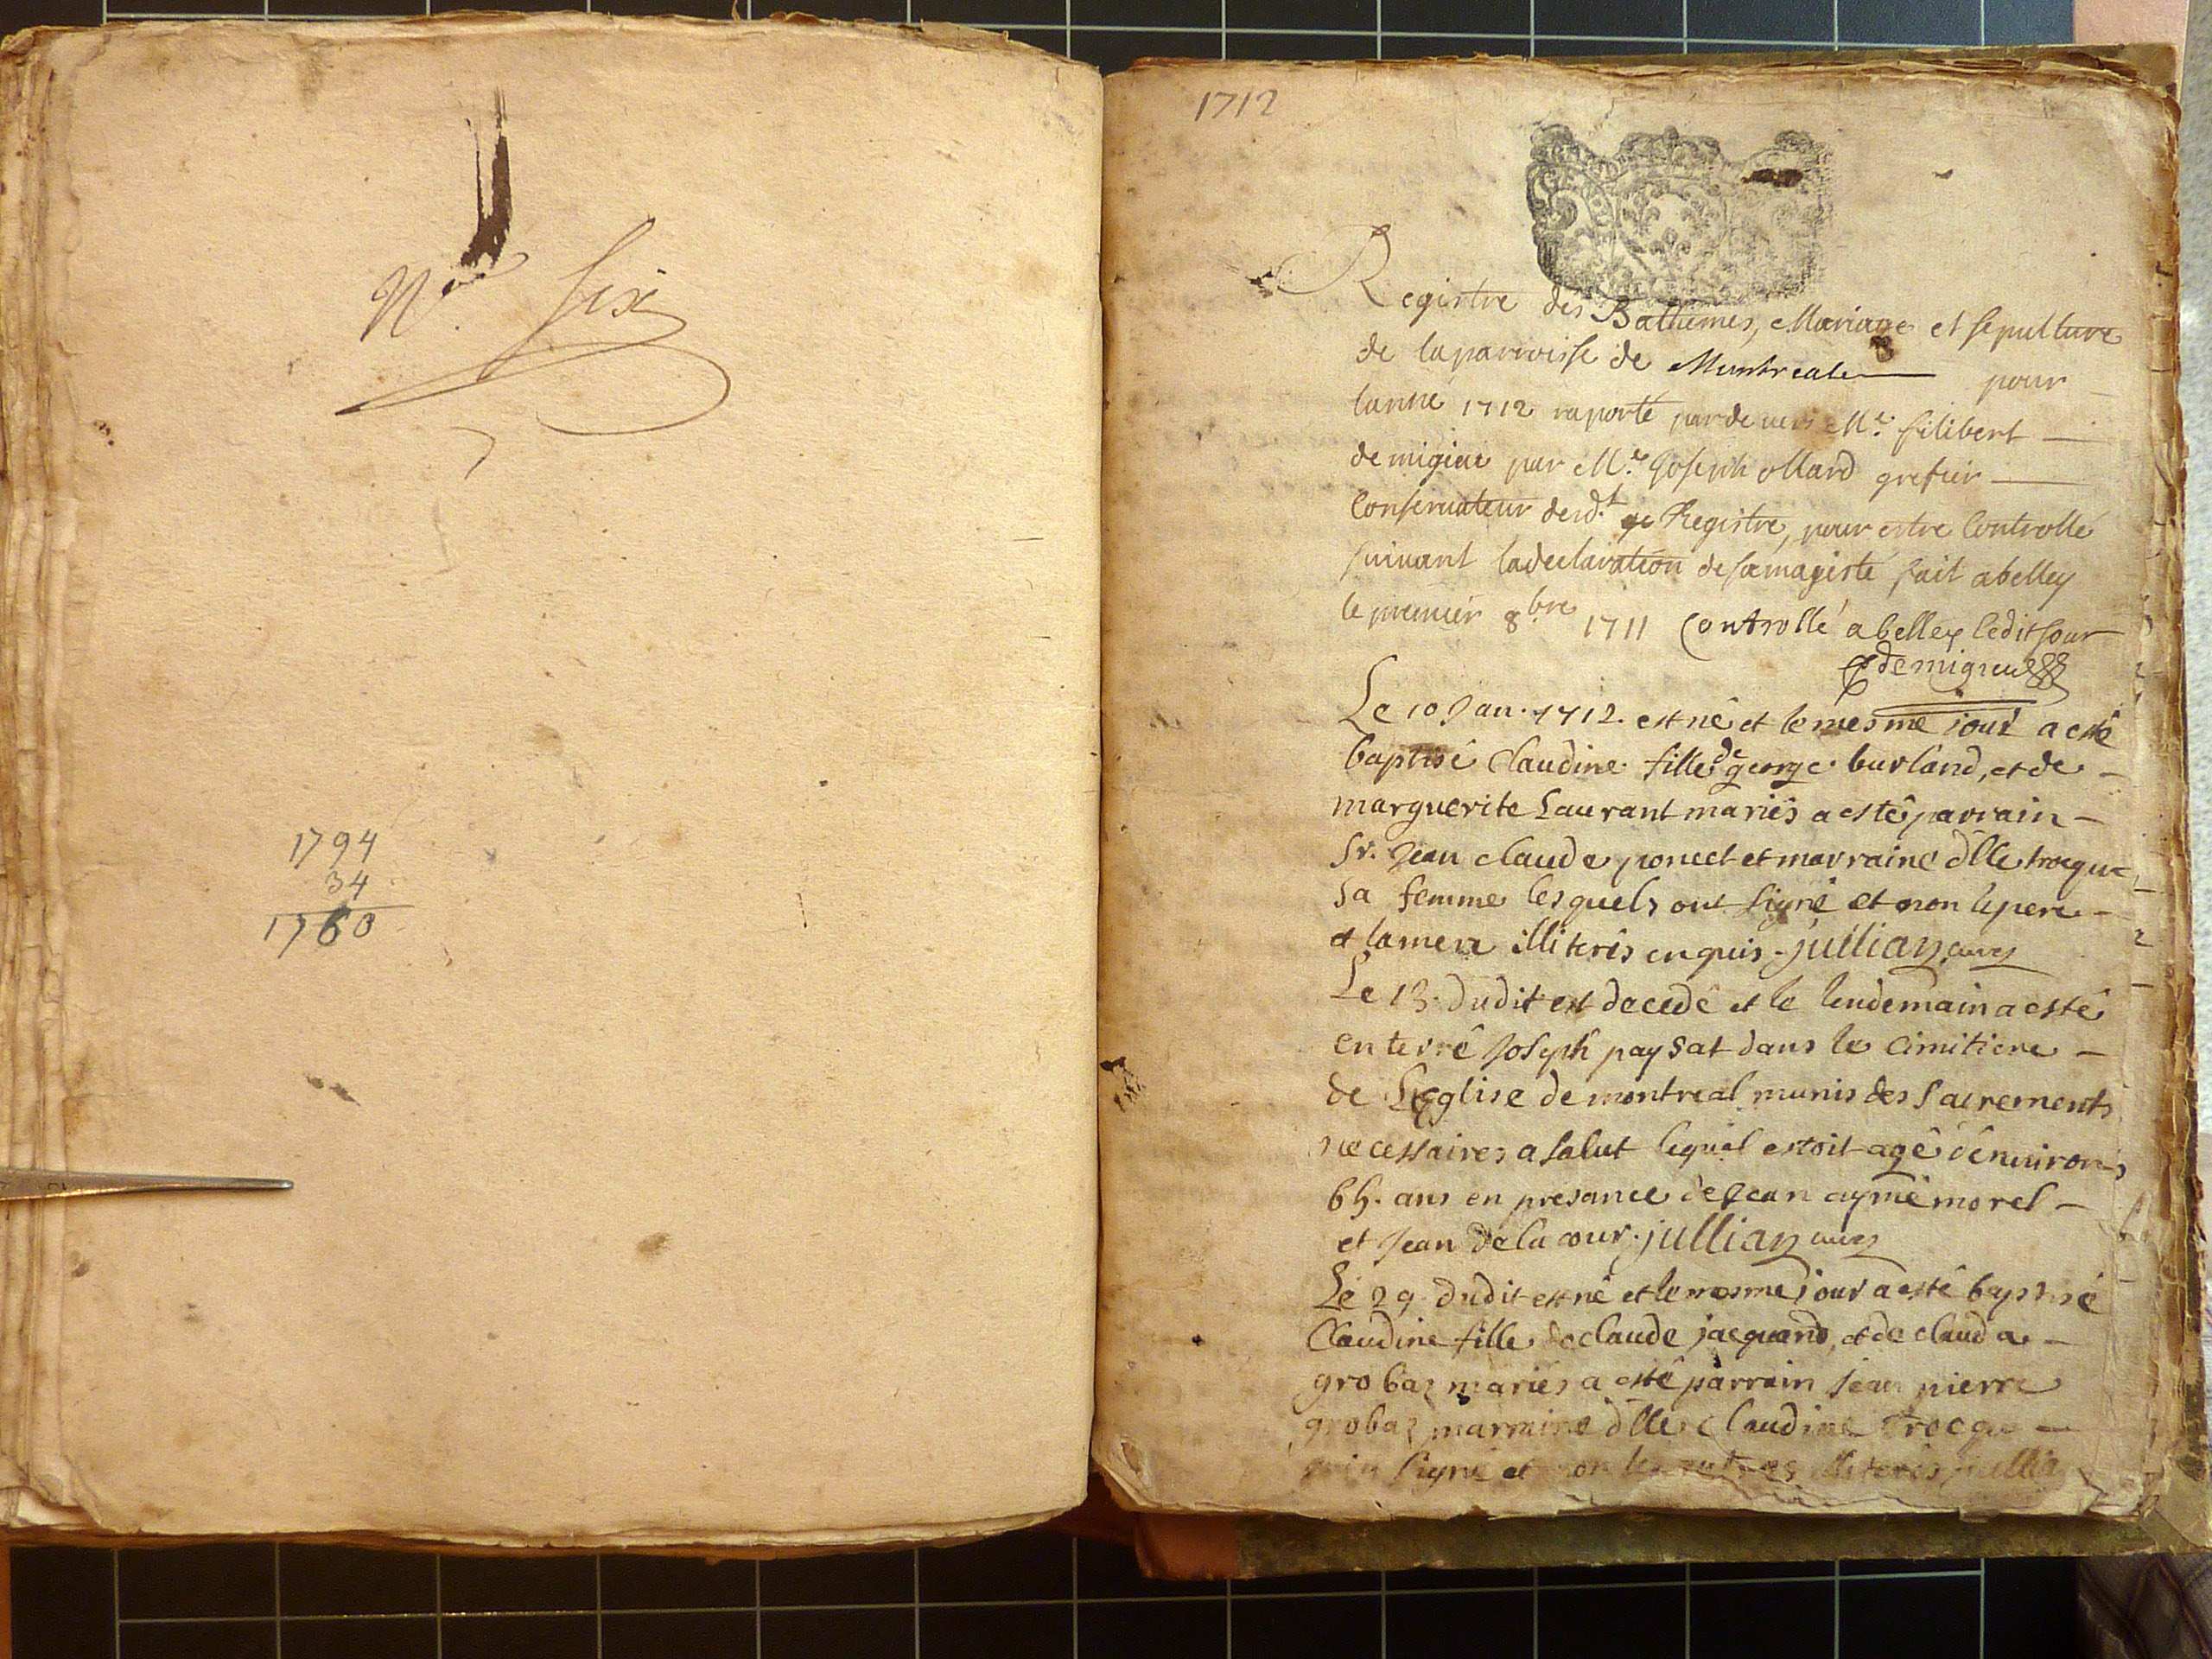 N.º Six
1794
34
1760
1712
Registre des Bathemes, Mariage et sepulture
de la parroisse de Montreale pour
lanné 1712 raporté parde vers Me. filibert
demigieu par Me. Joseph ollard grefier
Conservateur desd.t Registre, pour estre Controllé
suivant ladeclaration desamagesté fait abelley
le premier 8.bre 1711 Controllé abelley ledit jour
demigieu
Le 10 Jan. 1712. est né et le mesme jour a esté
baptisé Claudine fille de george burland, et de
marguerite Laurant mariés a esté parrain
Sr. Jean claude poncet et marraine dlle trocqu
sa femme lesquels ont signé et non le pere
et la mere illiterés enquis. jullian curé
Le 13. dudit est decedé et le lendemain a esté
enterré Joseph paysat dans le cimitiere
de L'eglise de montreal munis des sacrements
necessaires a salut lequel estoit agé d'environ
65. ans en presance de Jean aymé morel
et Jean de la cour. jullian curé
Le 29. dudit est né et le mesme jour a esté baptisé
Claudine fille de claude jacquand, et de clauda
grobaz mariés a esté parrain Jean pierre
grobaz marraine dlle Claudine Trocqu
signé et non les autres illiterés jullia